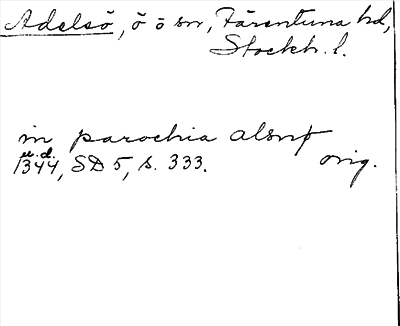 Adelsö, ö o sn, Färentuna hd,
Stockh. l.
in parochia alsnø
u.d.
1344, SD 5, s. 333. orig.